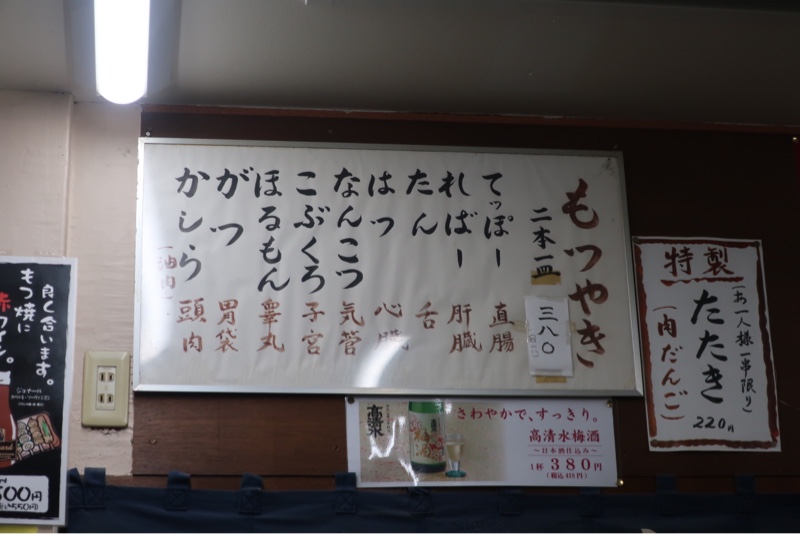 もつやき
二本一皿
三八〇
てっぽー 直腸
ればー 肝臓
たん 舌
はつ 心臓
なんこつ 気管
こぶくろ 子宮
ほるもん 睾丸
がつ 胃袋
かしら 頭肉
特製
(お一人様一串限り)
たたき
(肉だんご)
220円
さわやかで、すっきり。
高清水梅酒
~日本酒仕込み~
1杯 380円
(税込418円)
良く合います。
もつ焼に
赤ワイン。
500円